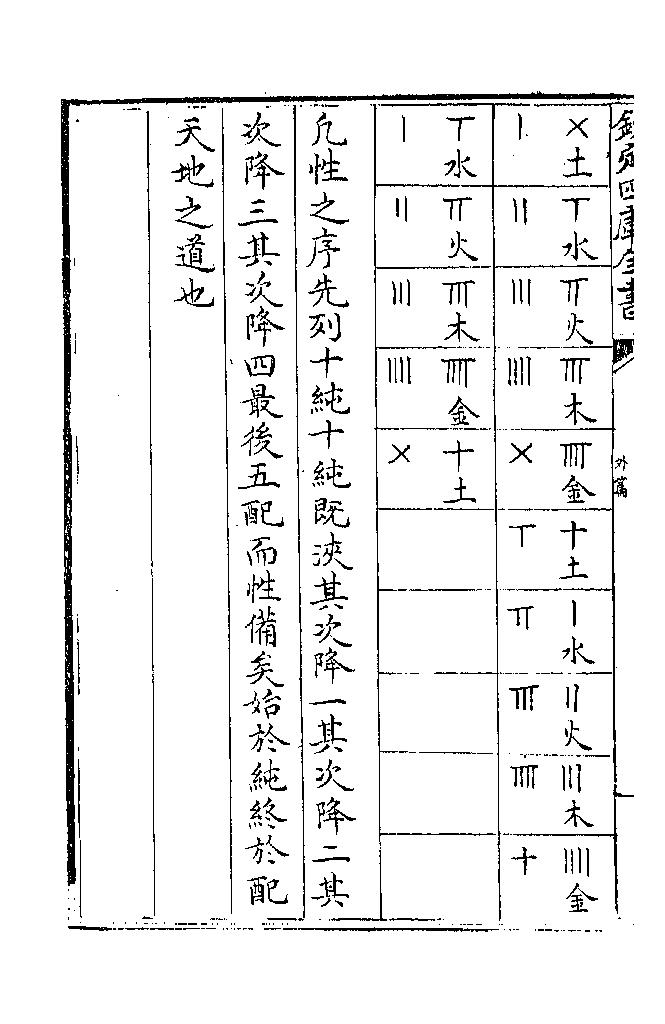 欽定四庫全書
外篇
×土 𝍥水 𝍦火 𝍧木 𝍨金 十土 𝍠水 𝍡火 𝍢木 𝍣金
𝍠 𝍡 𝍢 𝍣 × 𝍥 𝍦 𝍧 𝍨 十
𝍥水 𝍦火 𝍧木 𝍨金 十土
𝍠 𝍡 𝍢 𝍣 ×
凢性之序先列十純十純既浹其次降一其次降二其
次降三其次降四最後五配而性備矣始於純終於配
天地之道也